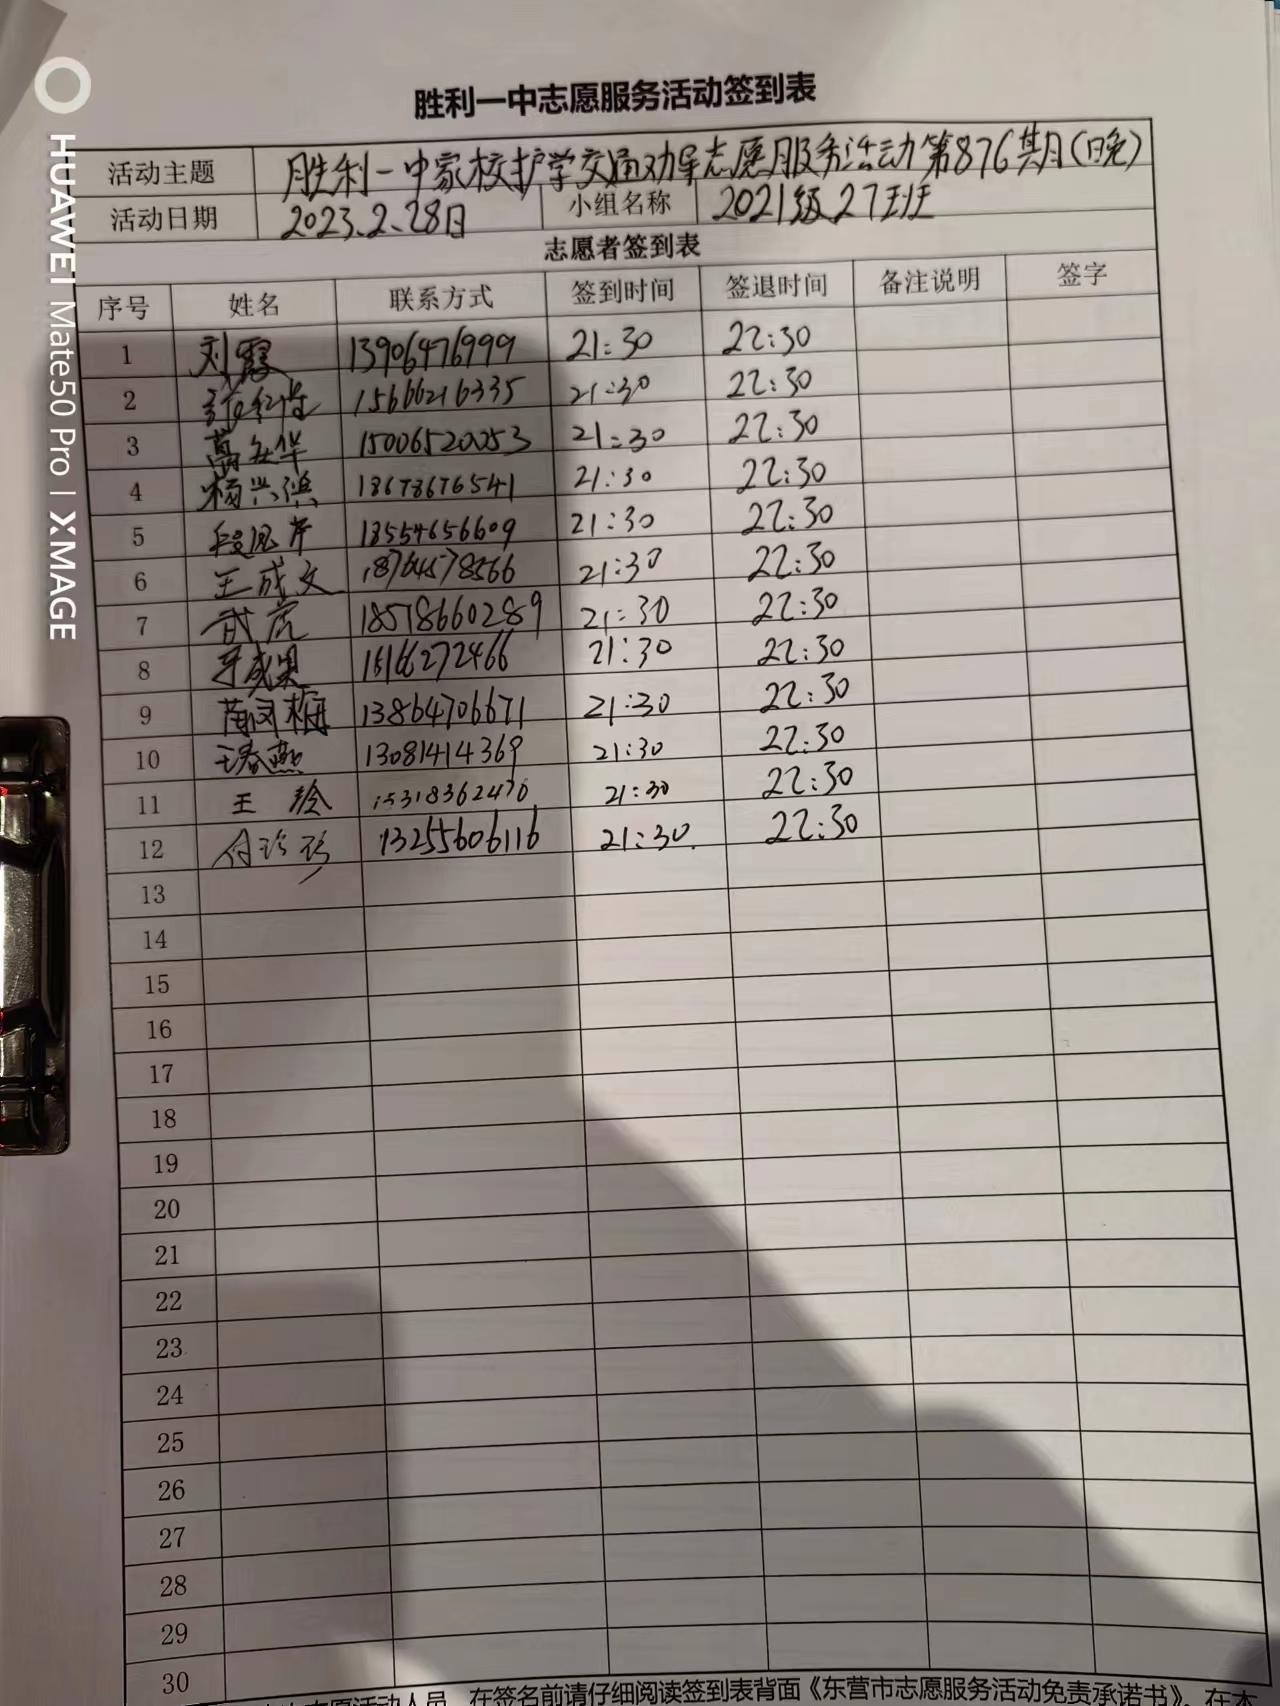 胜利一中志愿服务活动签到表
活动主题 胜利一中家校护学交通劝导志愿服务活动第876期(晚)
活动日期 2023.2.28日 小组名称 2021级27班
志愿者签到表
序号 姓名 联系方式 签到时间 签退时间 备注说明 签字
1 刘霞 13906476999 21:30 22:30
2 15666216335 21:30 22:30
3 15006520253 21:30 22:30
4 杨兴滨 18678676541 21:30 22:30
5 18554656609 21:30 22:30
6 王成文 18764578566 21:30 22:30
7 武虎 18578660289 21:30 22:30
8 15166272466 21:30 22:30
9 13864706671 21:30 22:30
10 王春燕 13081414369 21:30 22:30
11 王玲 15318362470 21:30 22:30
12 付珍珍 13255606116 21:30 22:30
13
14
15
16
17
18
19
20
21
22
23
24
25
26
27
28
29
30
志愿活动人员，在签名前请仔细阅读签到表背面《东营市志愿服务活动免责承诺书》，在本
HUAWEI Mate50 Pro | XMAGE